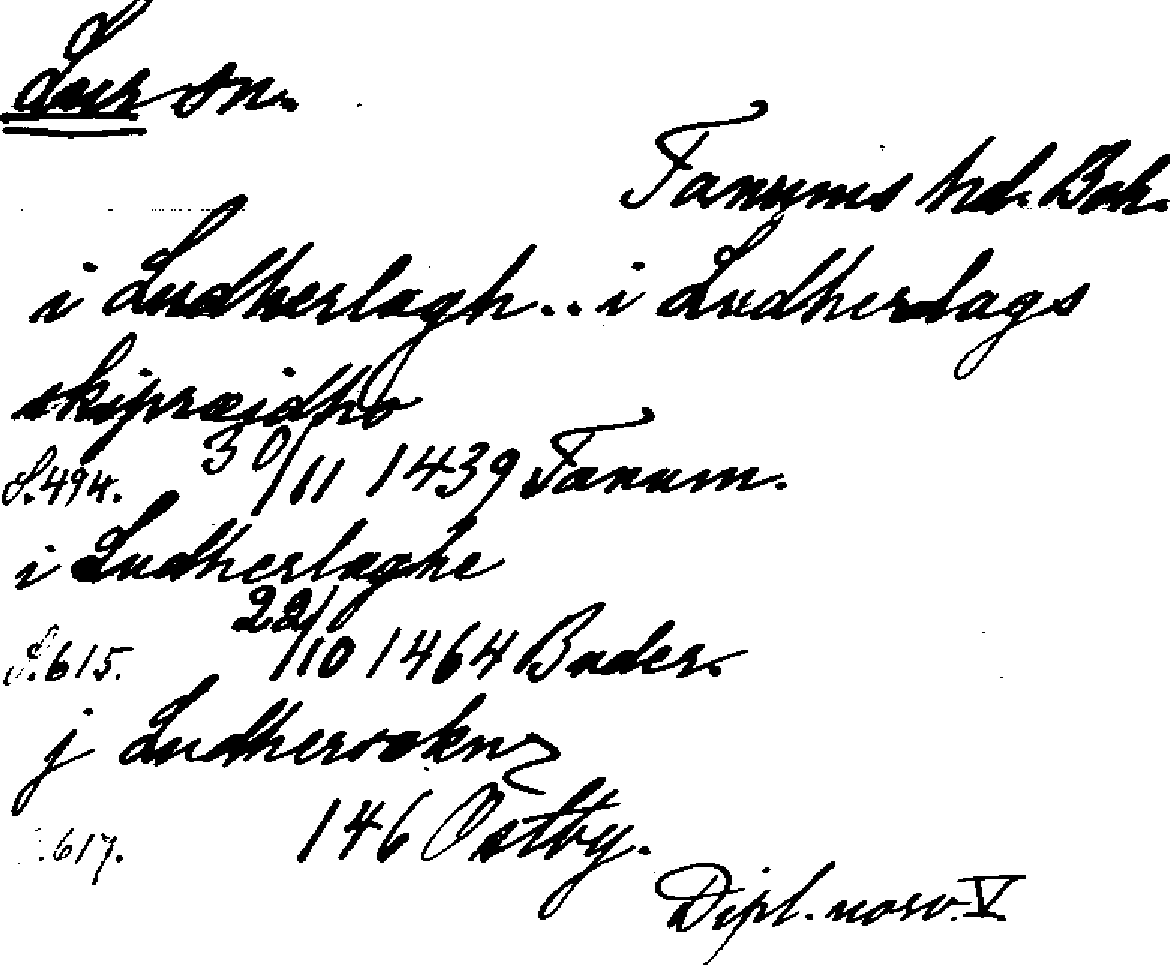 Lur sn.
Tanums hd. Boh.
i Ludherlagh.. i Ludherlags
skipræidho
S.494. 30/11 1439 Tanum.
i Ludherlaghe
S.615. 22/10 1464 Bader.
j Ludhersokn
S.617. 146 Östby.
Dipl. norv. V